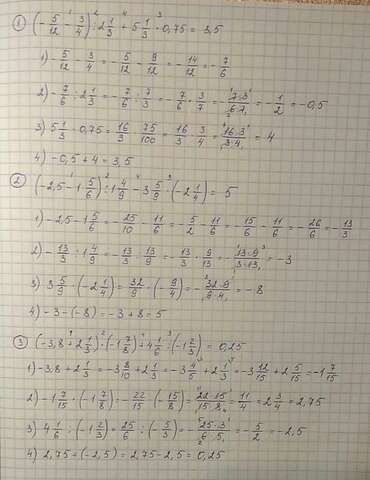 ① (-5/12 - 3/4) : 2 1/3 + 5 1/3 · 0,75 = 3,5
1) -5/12 - 3/4 = -5/12 - 9/12 = -14/12 = -7/6
2) -7/6 : 2 1/3 = -7/6 : 7/3 = -7/6 · 3/7 = -7·3/6·7 = -1/2 = -0,5
3) 5 1/3 · 0,75 = 16/3 · 75/100 = 16/3 · 3/4 = 16·3/3·4 = 4
4) -0,5 + 4 = 3,5
② (-2,5 - 1 5/6) : 1 4/9 - 3 5/9 · (-2 1/4) = 5
1) -2,5 - 1 5/6 = -25/10 - 11/6 = -5/2 - 11/6 = -15/6 - 11/6 = -26/6 = -13/3
2) -13/3 : 1 4/9 = -13/3 : 13/9 = -13/3 · 9/13 = -13·9/3·13 = -3
3) 3 5/9 · (-2 1/4) = 32/9 · (-9/4) = -32·9/9·4 = -8
4) -3 - (-8) = -3 + 8 = 5
③ (-3,8 + 2 1/3) · (-1 7/8) + 4 1/6 : (-1 2/3) = 0,25
1) -3,8 + 2 1/3 = -3 8/10 + 2 1/3 = -3 4/5 + 2 1/3 = -3 12/15 + 2 5/15 = -1 7/15
2) -1 7/15 · (-1 7/8) = -22/15 · (-15/8) = 22·15/15·8 = 11/4 = 2 3/4 = 2,75
3) 4 1/6 : (-1 2/3) = 25/6 : (-5/3) = -25·3/6·5 = -5/2 = -2,5
4) 2,75 + (-2,5) = 2,75 - 2,5 = 0,25